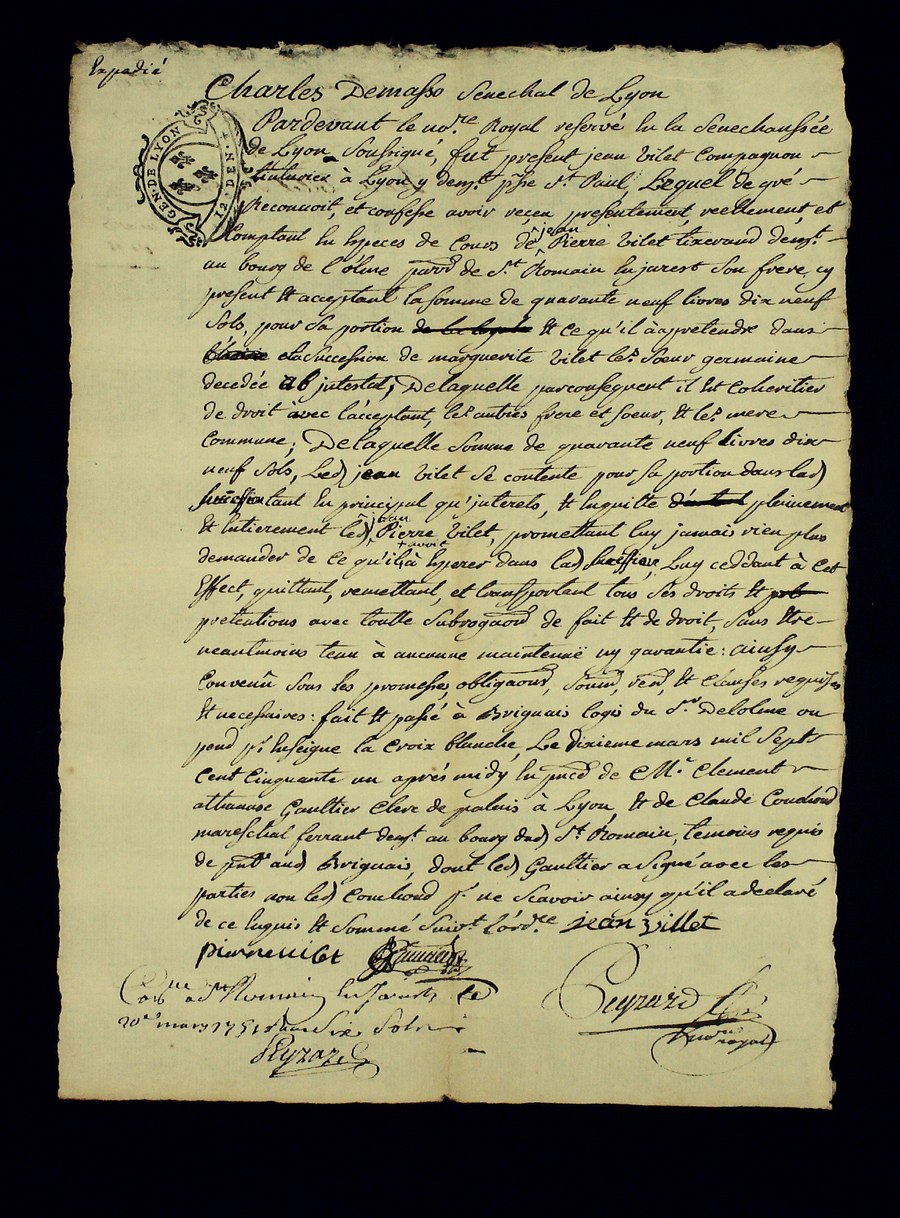 Expedié
Charles Demasso Senechal de Lyon
GEN. DE LYON
12. DEN. 4.
Pardevant le nore. Royal reservé En la Senechaussée
de Lyon Soussigné, fut present jean Vilet Compagnon
teinturier à Lyon y demt. psse St. Paul, Lequel de gré
Reconnoit, et confesse avoir reçeu presentement, reellement, et
Comptant En Especes de Cours de jean Pierre Vilet tixerand demt.
au bourg de l'olme parrd de St. Romain En jarest Son frere cy
present Et acceptant la somme de quarante neuf livres dix neuf
Sols, pour Sa portion Et Ce qu'il à a pretendre dans
la Succession de marguerite Vilet les. Soeur germaine
decedée ab jntestat, De laquelle parconsequent il Est Coheritier
de droit avec l'acceptant, les. autres frere et Soeur, Et les. mere
Commune; De laquelle Somme de quarante neuf livres dix
neuf Sols, Led) jean Vilet Se contente pour Sa portion dans lad)
Succession tant En principal qu'jnterets, Et Enquitte pleinement
Et Entierement led) jean Pierre Vilet, promettant luy jamais rien plus
demander de Ce qu'il avoit à Esperer dans lad) Succession, Luy ceddant à Cet
Effect, quittant, remettant, et transportant tous Ses droits Et
pretentions avec toutte Subrogaond de fait Et de droit, Sans Etre
neantmoins tenu à aucunne maintenuë ny garantie: ainsy
Convenu Sous les promesses, obligaons, Soumd, rend, Et Clauses requises
Et necessaires: fait Et passé à Brignais logis du Sr. Delolme ou
pend pr. Enseigne la Croix blanche, Le dixieme mars mil Sept
Cent Cinquante un aprés midy En pncd de Me. Clement
athanase Gaultier Clerc de palais à Lyon Et de Claude Couchoud
mareschal ferrant demt. au bourg dud) St. Romain, temoins requis
de pntt. aud) Brignais, dont led) Gaultier a Signé avec les
parties non led) Couchoud pr. ne Scavoir ainsy qu'il a declaré
de ce Enquis Et Sommé Suivt. L'ordce. jean villet
pierre vilet Gaultier
Conlle a St. Romain En Jarests le
20e mars 1751 Six Sols
Peyzard
Peyzard
royal